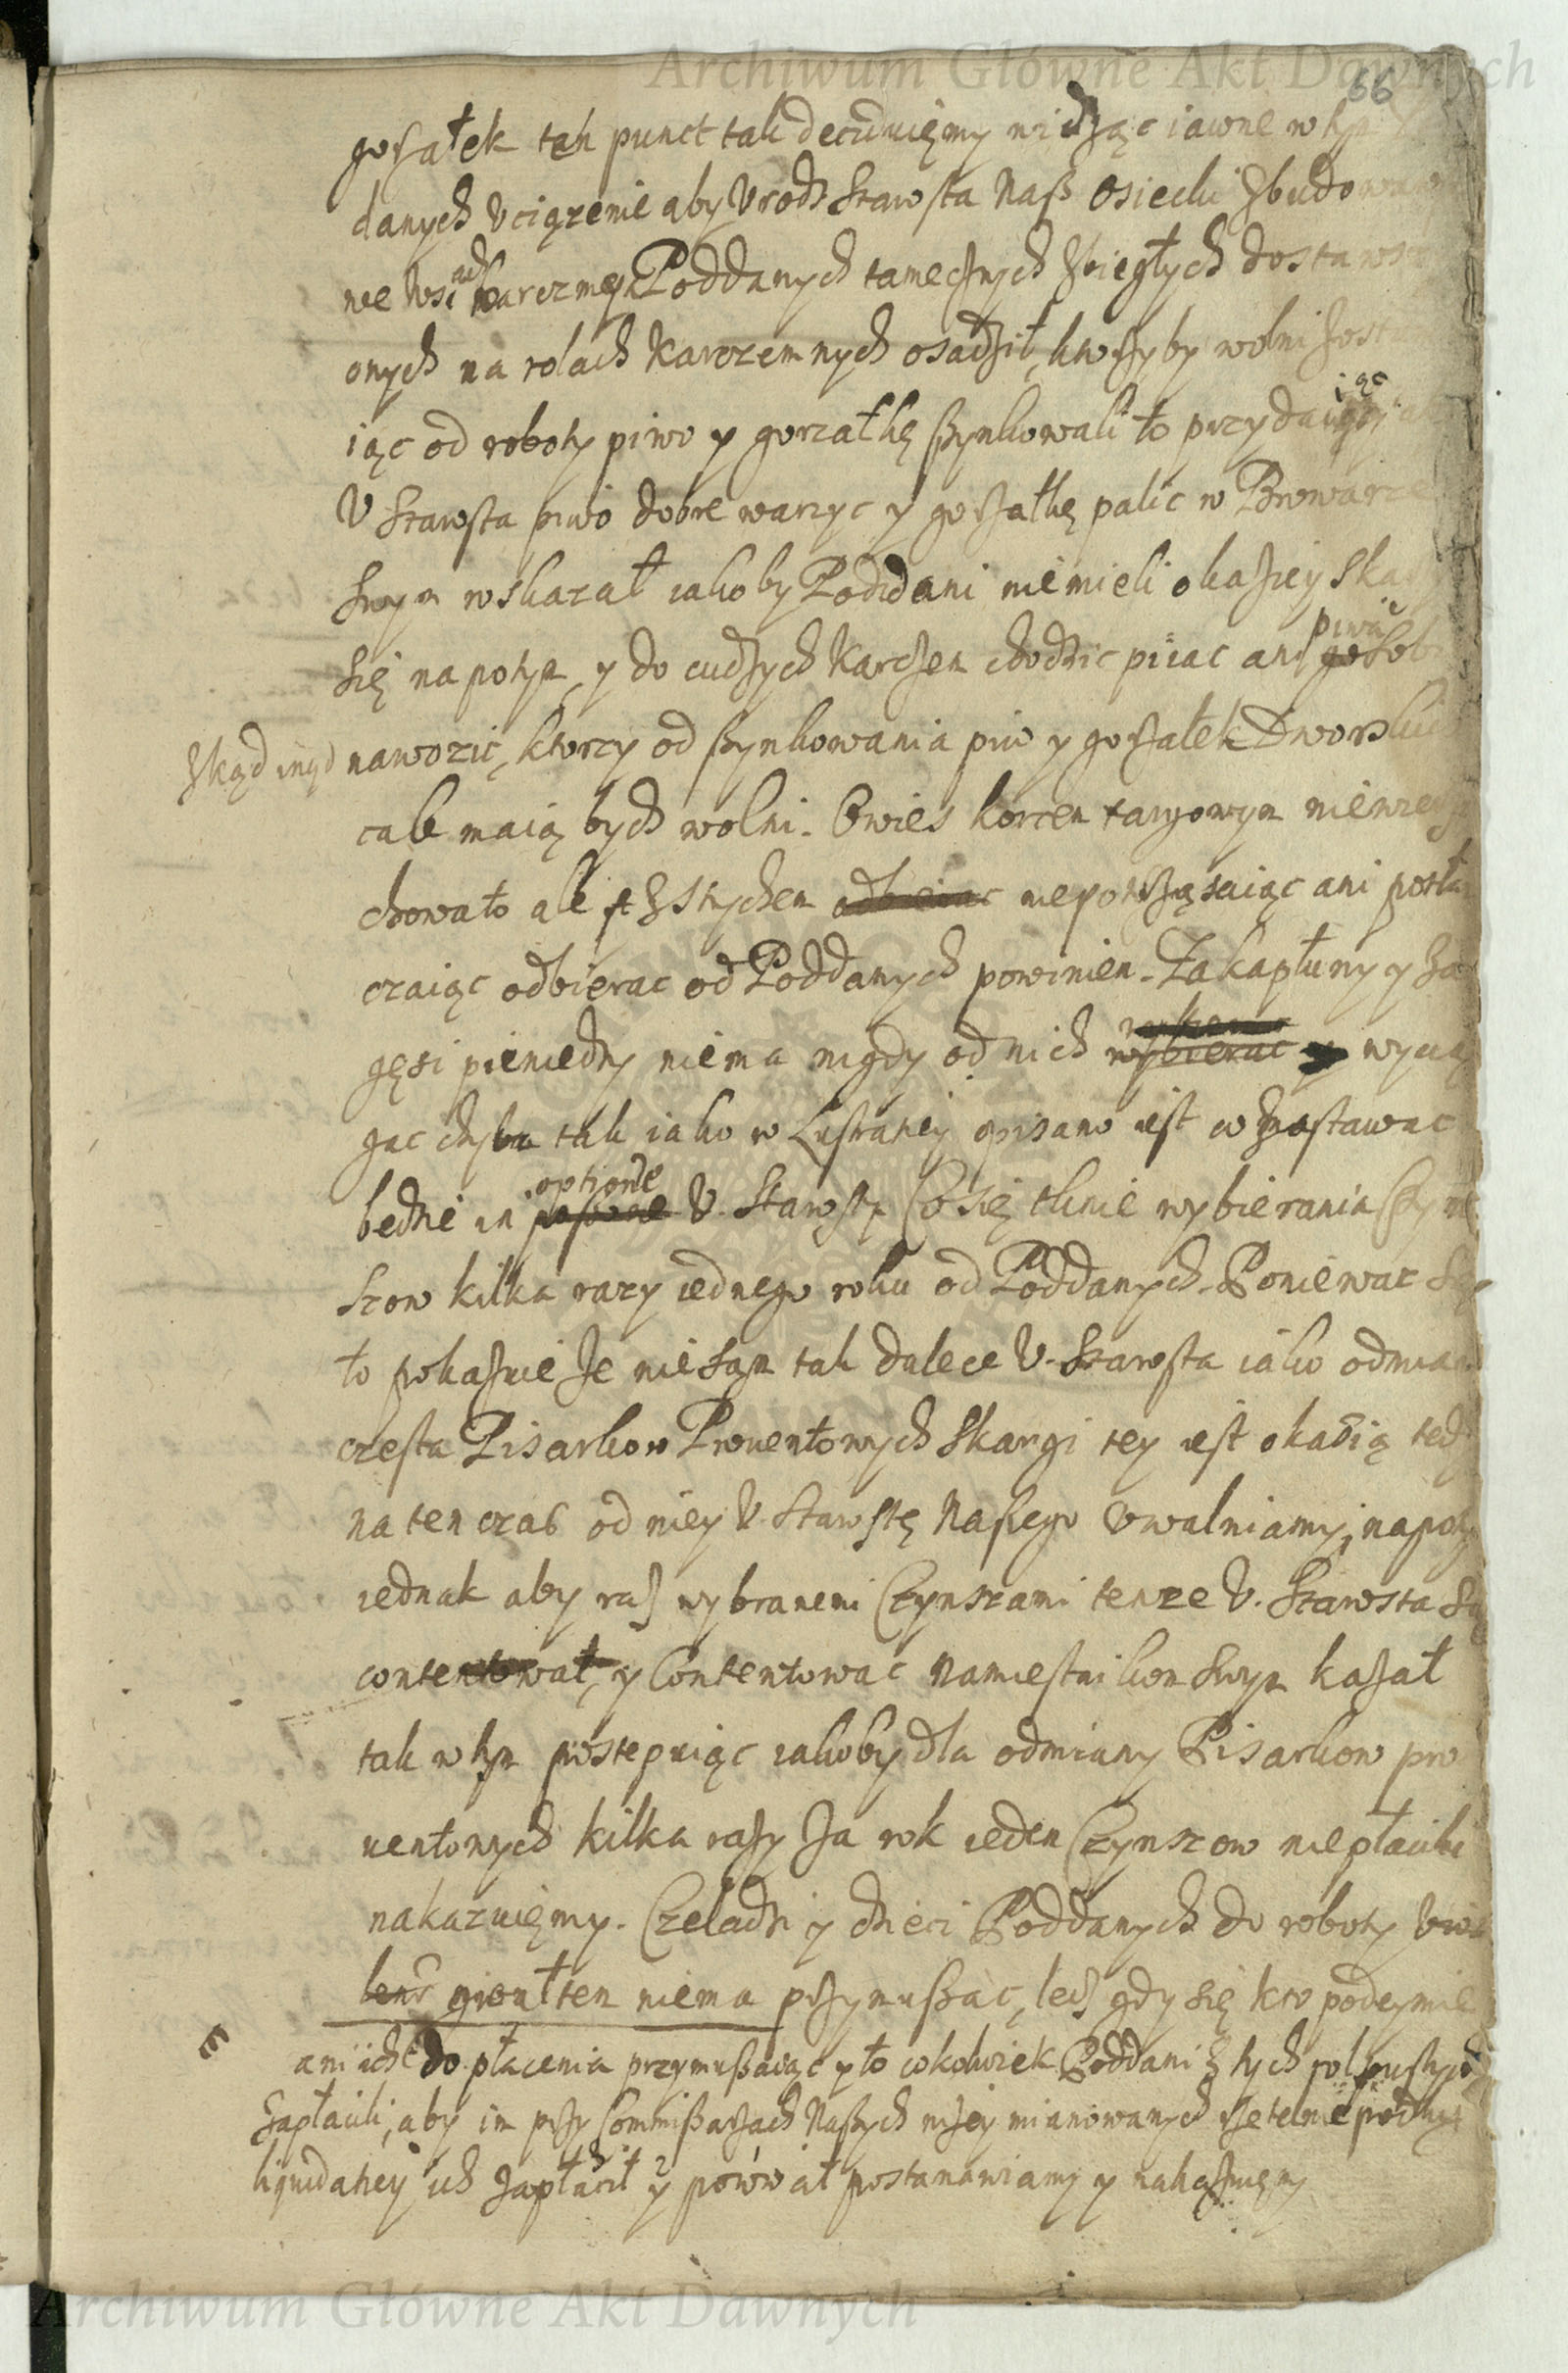 Archiwum Główne Akt Dawnych
66
gorzałek ten punct tak decidujęmy widząc iawne w tym
danych uciążenie aby Urodz Starosta Nasz Osiecki zbudowaw
we wsiach karczmy Poddanych tamecznych zbiegłych dostawszy
onych na rolach karczemnych osadził, ktorzyby wolni zosta
iąc od roboty piwo y gorzałkę szynkowali to przydaiąc
U Starosta piwo dobre warzyc y gorzałkę palic w Browarze
swym wskazał iakoby Poddani niemieli okazyey skarzyc
się napotym, y do cudzych karczem chodzic piiac ani piwa sobie
zkąd inąd nawozic, ktorzy od szynkowania piw y gorzałek Dworskich
cale maią bydz wolni. Owies korcem targowym
chowato ale z strychem odbierac niepotrząsaiąc ani potła
czaiąc odbierac od Poddanych powinien. Za kapłuny y za
gęsi pieniędzy niema nigdy od nich wybierac y wycią
gac chyba tak iako w Lustratiey opisano iest co zostawac
będzie in optione U. Starosty. Co się tknie wybierania Czyn
szow kilka razy iednego roku od Poddanych. Poniewaz się
to pokazuie ze niesam tak dalece U. Starosta iako odmiana
częsta Pisarkow Prouentowych skargi tey iest okasią tedy
na ten czas od niey U. Starostę Naszego uwalniamy, napotym
iednak aby raz wybranemi Czynszami tenze U. Starosta się
contentował, y contentowac Namiestnikom swym kazał
tak w tym postępuiąc iakoby dla odmiany Pisarkow pro
uentowych kilka razy za rok ieden Czynszow niepłacili
nakazuięmy. Czeladzi y dzieci Poddanych do roboty
gwałtem niema przymuszac, lecz gdy się kto podeymie
ani ich do płacenia przymuszaiąc y to cokolwiek Poddani z tych rol pustych
zapłacili, aby im przy Commissarzach Naszych nizey mianowanych rzetelnie podług
liquidatiey ich zapłacił y powrocił postanawiamy y nakazuięmy
Archiwum Główne Akt Dawnych